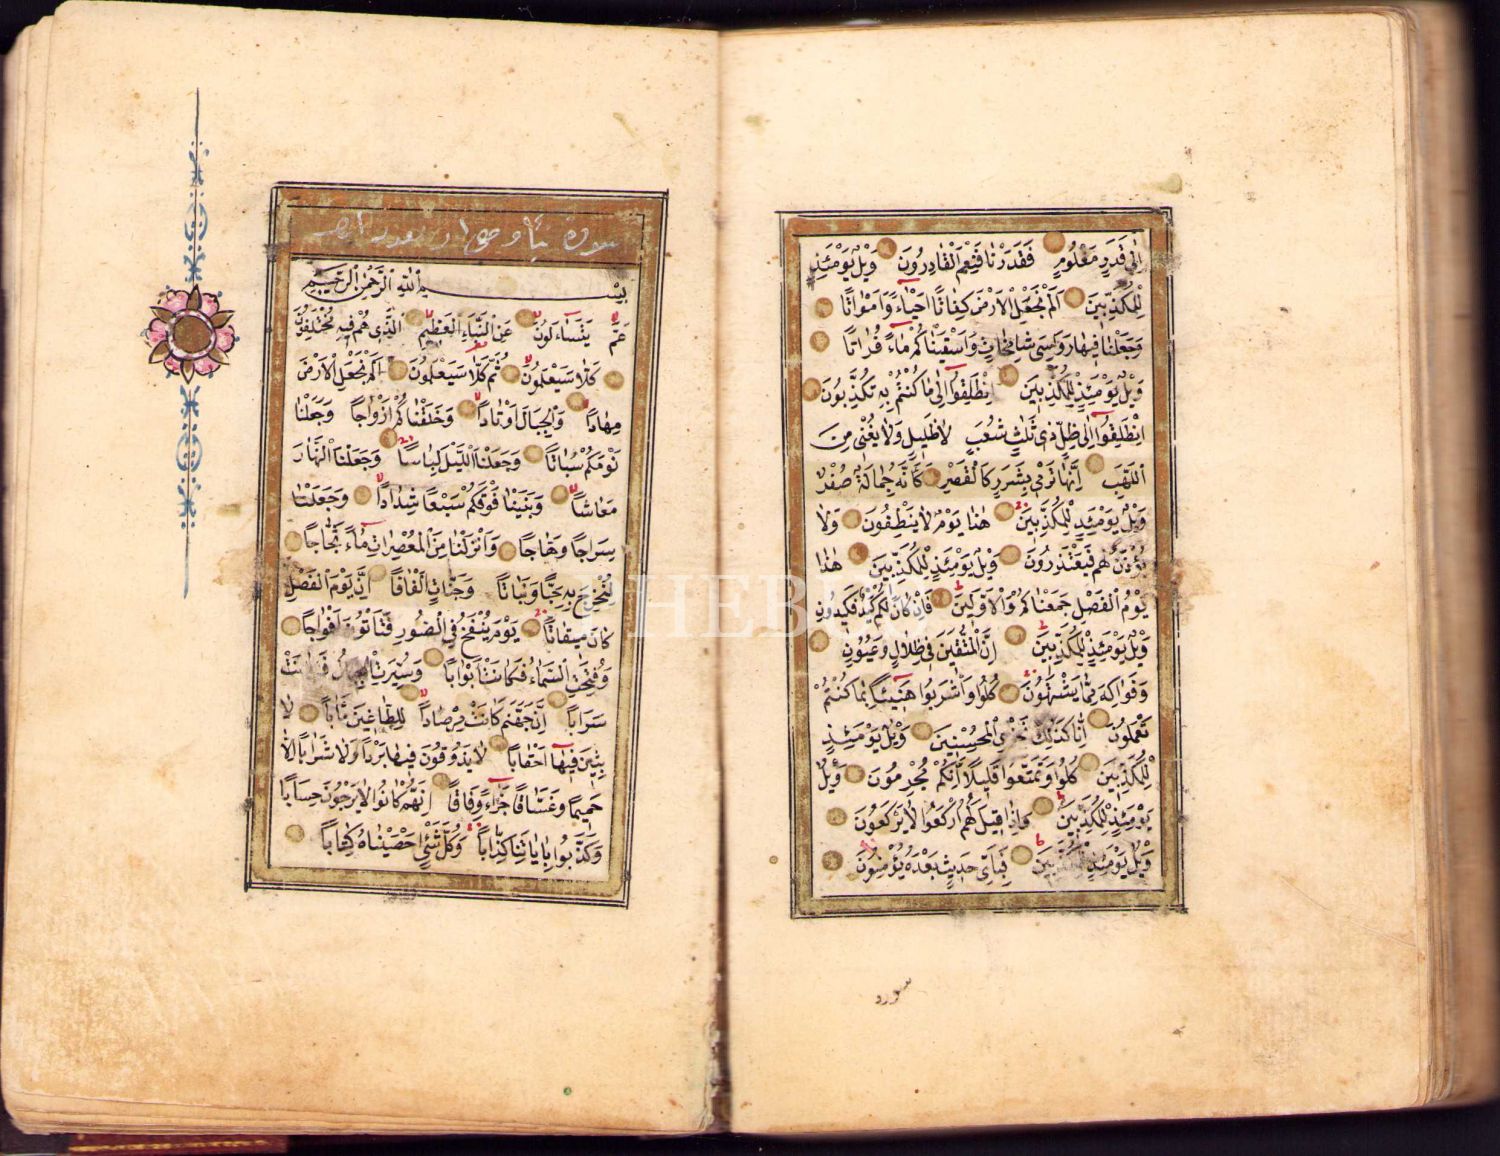 إلى قَدَرٍ مَعْلُومٍ فَقَدَرْنَا فَنِعْمَ الْقَادِرُونَ وَيْلٌ يَوْمَئِذٍ
لِلْمُكَذِّبِينَ اَلَمْ نَجْعَلِ الْاَرْضَ كِفَاتًا اَحْيَاءً وَاَمْوَاتًا
وَجَعَلْنَا فِيهَا رَوَاسِيَ شَامِخَاتٍ وَاَسْقَيْنَاكُمْ مَاءً فُرَاتًا
وَيْلٌ يَوْمَئِذٍ لِلْمُكَذِّبِينَ اِنْطَلِقُوا اِلٰى مَا كُنْتُمْ بِهِ تُكَذِّبُونَ
اِنْطَلِقُوا اِلٰى ظِلٍّ ذِى ثَلٰثِ شُعَبٍ لَا ظَلِيلٍ وَلَا يُغْنِى مِنَ
اللَّهَبِ اِنَّهَا تَرْمِى بِشَرَرٍ كَالْقَصْرِ كَاَنَّهُ جِمَالَةٌ صُفْرٌ
وَيْلٌ يَوْمَئِذٍ لِلْمُكَذِّبِينَ هٰذَا يَوْمُ لَا يَنْطِقُونَ وَلَا
يُؤْذَنُ لَهُمْ فَيَعْتَذِرُونَ وَيْلٌ يَوْمَئِذٍ لِلْمُكَذِّبِينَ هٰذَا
يَوْمُ الْفَصْلِ جَمَعْنَاكُمْ وَالْاَوَّلِينَ فَاِنْ كَانَ لَكُمْ كَيْدٌ فَكِيدُونِ
وَيْلٌ يَوْمَئِذٍ لِلْمُكَذِّبِينَ اِنَّ الْمُتَّقِينَ فِى ظِلَالٍ وَعُيُونٍ
وَفَوَاكِهَ مِمَّا يَشْتَهُونَ كُلُوا وَاشْرَبُوا هَنِيئًا بِمَا كُنْتُمْ
تَعْمَلُونَ اِنَّا كَذٰلِكَ نَجْزِى الْمُحْسِنِينَ وَيْلٌ يَوْمَئِذٍ
لِلْمُكَذِّبِينَ كُلُوا وَتَمَتَّعُوا قَلِيلًا اِنَّكُمْ مُجْرِمُونَ وَيْلٌ
يَوْمَئِذٍ لِلْمُكَذِّبِينَ وَاِذَا قِيلَ لَهُمُ ارْكَعُوا لَا يَرْكَعُونَ
وَيْلٌ يَوْمَئِذٍ لِلْمُكَذِّبِينَ فَبِاَىِّ حَدِيثٍ بَعْدَهُ يُؤْمِنُونَ
سورة
سورة نبأ
بِسْمِ اللّٰهِ الرَّحْمٰنِ الرَّحِيمِ
عَمَّ يَتَسَاءَلُونَ عَنِ النَّبَاِ الْعَظِيمِ اَلَّذِى هُمْ فِيهِ مُخْتَلِفُونَ
كَلَّا سَيَعْلَمُونَ ثُمَّ كَلَّا سَيَعْلَمُونَ اَلَمْ نَجْعَلِ الْاَرْضَ
مِهَادًا وَالْجِبَالَ اَوْتَادًا وَخَلَقْنَاكُمْ اَزْوَاجًا وَجَعَلْنَا
نَوْمَكُمْ سُبَاتًا وَجَعَلْنَا اللَّيْلَ لِبَاسًا وَجَعَلْنَا النَّهَارَ
مَعَاشًا وَبَنَيْنَا فَوْقَكُمْ سَبْعًا شِدَادًا وَجَعَلْنَا
سِرَاجًا وَهَّاجًا وَاَنْزَلْنَا مِنَ الْمُعْصِرَاتِ مَاءً ثَجَّاجًا
لِنُخْرِجَ بِهِ حَبًّا وَنَبَاتًا وَجَنَّاتٍ اَلْفَافًا اِنَّ يَوْمَ الْفَصْلِ
كَانَ مِيقَاتًا يَوْمَ يُنْفَخُ فِى الصُّورِ فَتَأْتُونَ اَفْوَاجًا
وَفُتِحَتِ السَّمَاءُ فَكَانَتْ اَبْوَابًا وَسُيِّرَتِ الْجِبَالُ فَكَانَتْ
سَرَابًا اِنَّ جَهَنَّمَ كَانَتْ مِرْصَادًا لِلطَّاغِينَ مَاٰبًا لَا
بِثِينَ فِيهَا اَحْقَابًا لَا يَذُوقُونَ فِيهَا بَرْدًا وَلَا شَرَابًا اِلَّا
حَمِيمًا وَغَسَّاقًا جَزَاءً وِفَاقًا اِنَّهُمْ كَانُوا لَا يَرْجُونَ حِسَابًا
وَكَذَّبُوا بِاٰيَاتِنَا كِذَّابًا وَكُلَّ شَىْءٍ اَحْصَيْنَاهُ كِتَابًا
PHEBUS